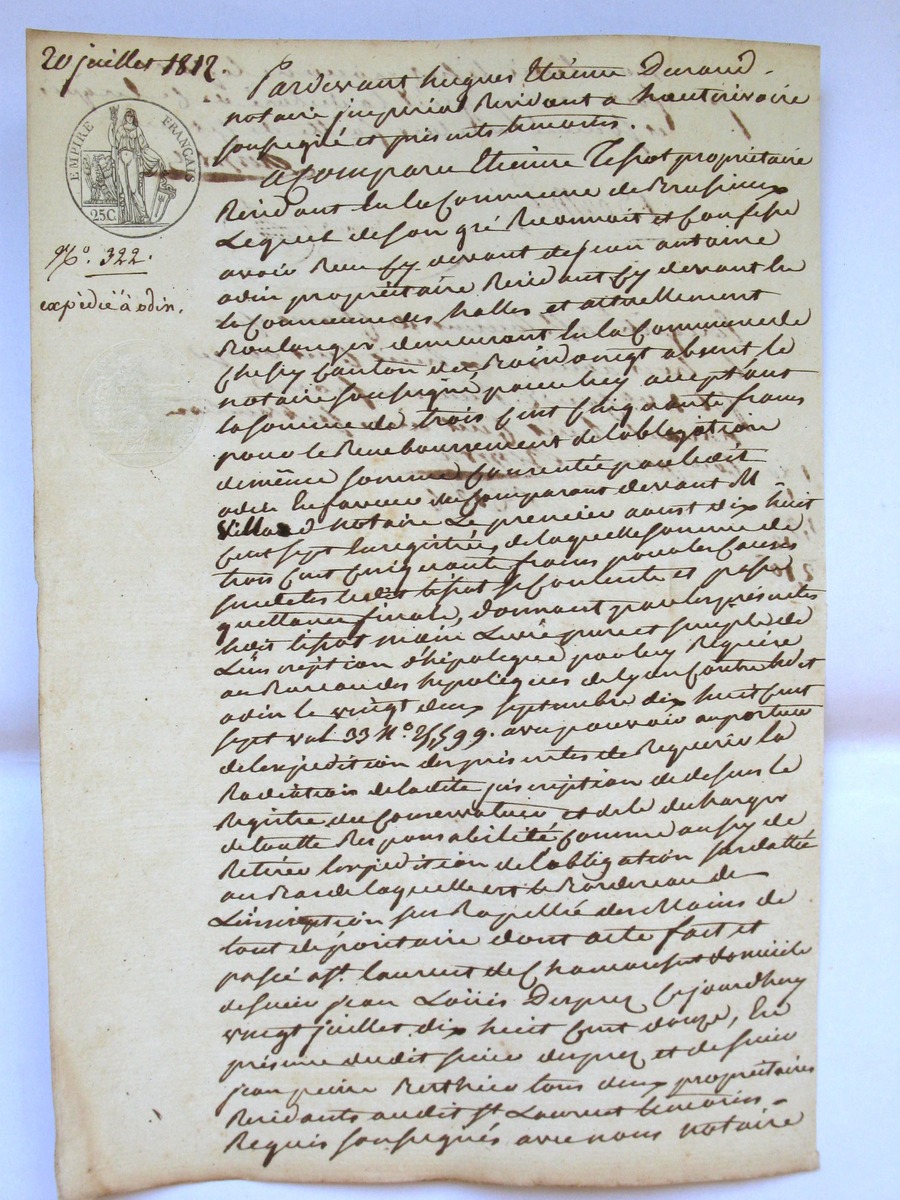 20 juillet 1812.
EMPIRE FRANÇAIS
25C.
N.o 322.
expédié à odin.
Pardevant hugues Etienne Durand
notaire imperial Résidant a hauterivoire
soussigné et présents temoins.
a Comparu Etienne Tissot propriétaire
Résidant en la Commune de Brussieux
Lequel de son gré Reconnait et Confesse
avoir Reçu cy devant de jean antoine
odin propriétaire Résidant cy devant en
la Commune des halles et actuellement
Boulanger demeurant en la Commune de
Chessy Canton de Boisdoingt absent le
notaire soussigné pour luy acceptant
la somme de trois cent cinquante francs
pour le Rembourcement de l'obligation
de même somme Consentie par ledit
odin En faveur du Comparant devant M
Villard notaire Le premier aoust dix huit
cent sept Enregistrée, de laquelle somme de
trois cent cinquante francs pour les causes
susdites ledit tissot se Contente et passe
quittance finale, donnant par les présentes
ledit tissot main Levée pure et simple de
L'inscription d'hipoteque par luy Requise
au Bureau des hipoteques de Lyon Contre ledit
odin le vingt deux septembre dix huit cent
sept vol. 33 N.o 25,599. avec pouvoir au porteur
de l'expedition des présentes de Requerir la
Radiation de ladite inscription de dessus le
Registre du Conservateur et de le decharger
de toutte Responsabilité, Comme aussy de
Retirer l'expedition de l'obligation susdattée
au Bas de laquelle est le Bordereau de
L'inscription sus Rapellée des Mains de
tout depositaire dont acte fait et
passé a St. laurent de Chamousset domicile
de sieur jean Loüis Desprez Cejourdhuy
vingt juillet dix huit cent douze, En
présence dudit sieur desprez et de sieur
jean pierre Berthier tous deux propriétaires
Résidants audit St. Laurent temoins
Requis soussignés avec nous notaire